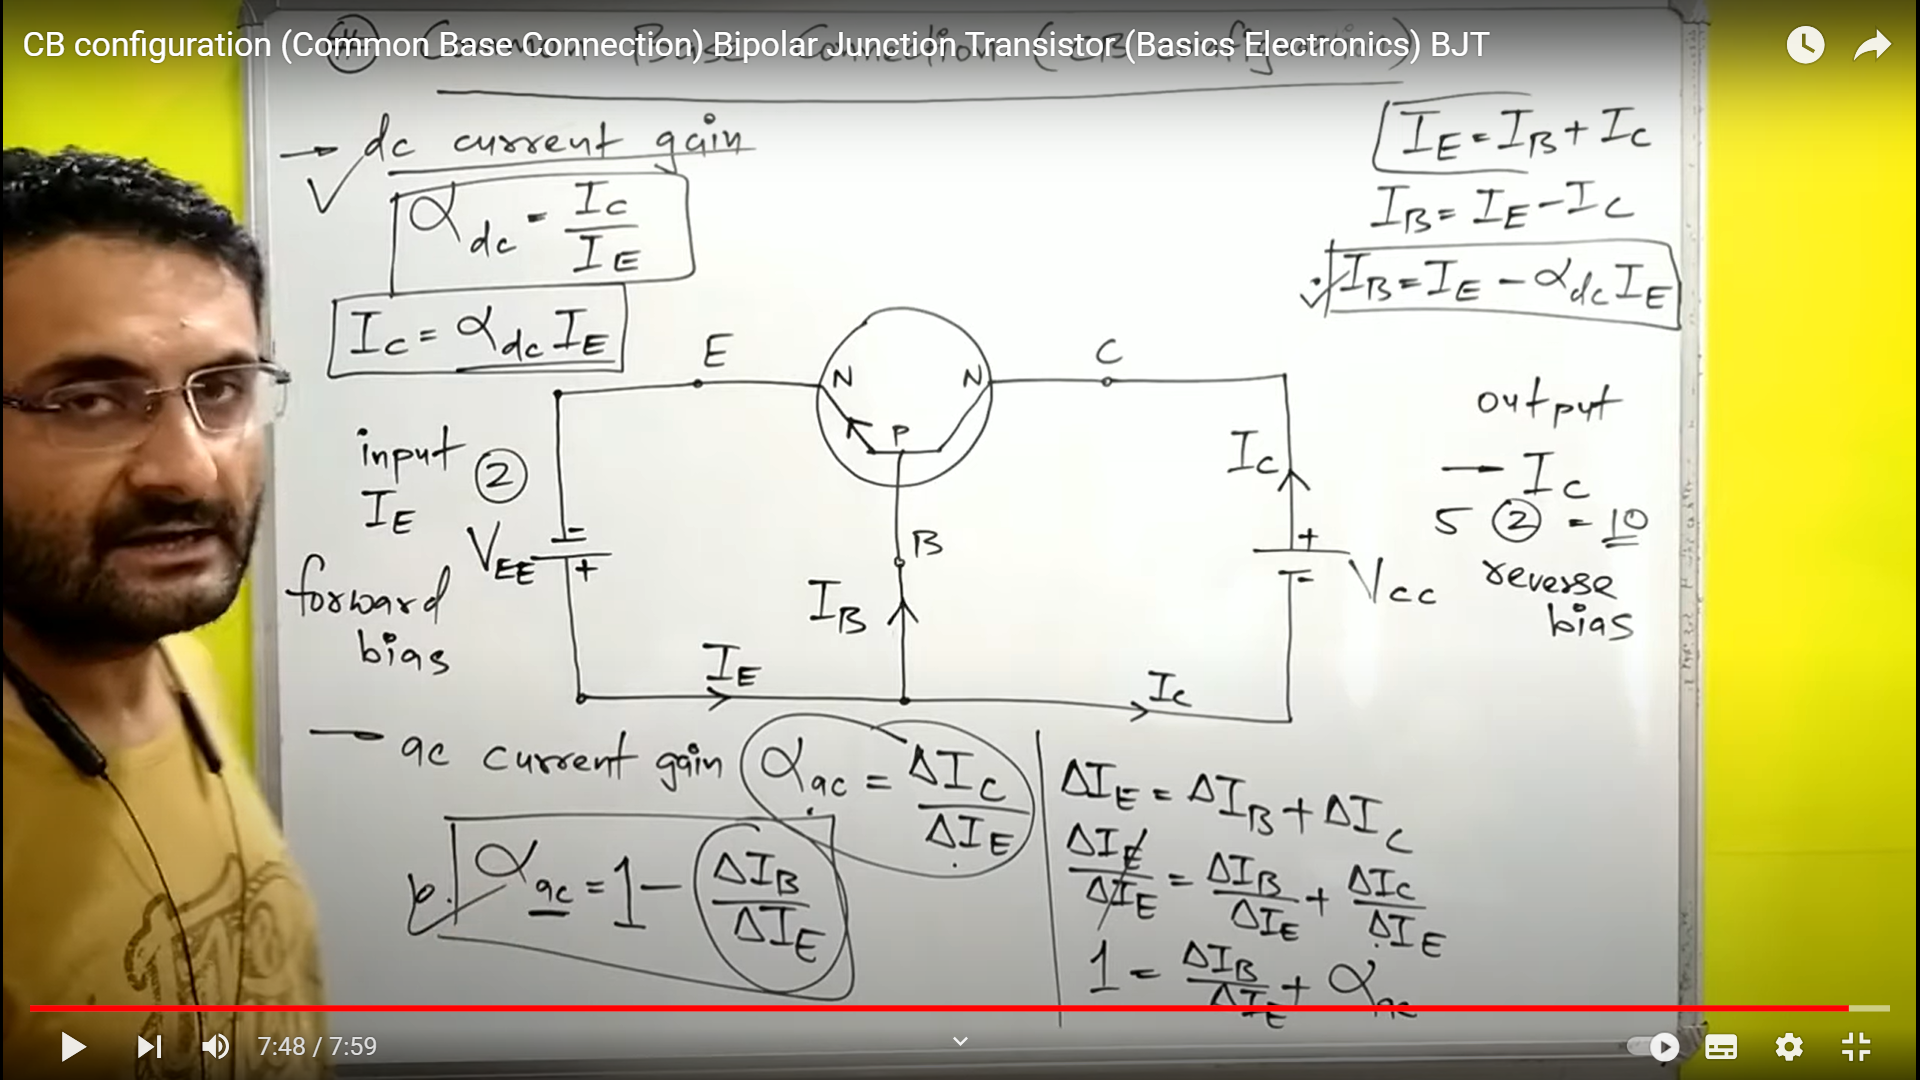 CB configuration (Common Base Connection) Bipolar Junction Transistor (Basics Electronics) BJT
→ dc current gain
α_dc = I_C / I_E
I_C = α_dc I_E
I_E = I_B + I_C
I_B = I_E - I_C
I_B = I_E - α_dc I_E
E
C
N
N
P
input
I_E
2
V_EE
-
+
forward
bias
B
I_B
I_E
I_C
I_C
+
-
V_CC
output
→ I_C
5 2 = 10
reverse
bias
— ac current gain α_ac = ΔI_C / ΔI_E
α_ac = 1 - ΔI_B / ΔI_E
ΔI_E = ΔI_B + ΔI_C
ΔI_E / ΔI_E = ΔI_B / ΔI_E + ΔI_C / ΔI_E
1 = ΔI_B / ΔI_E + α_ac
7:48 / 7:59